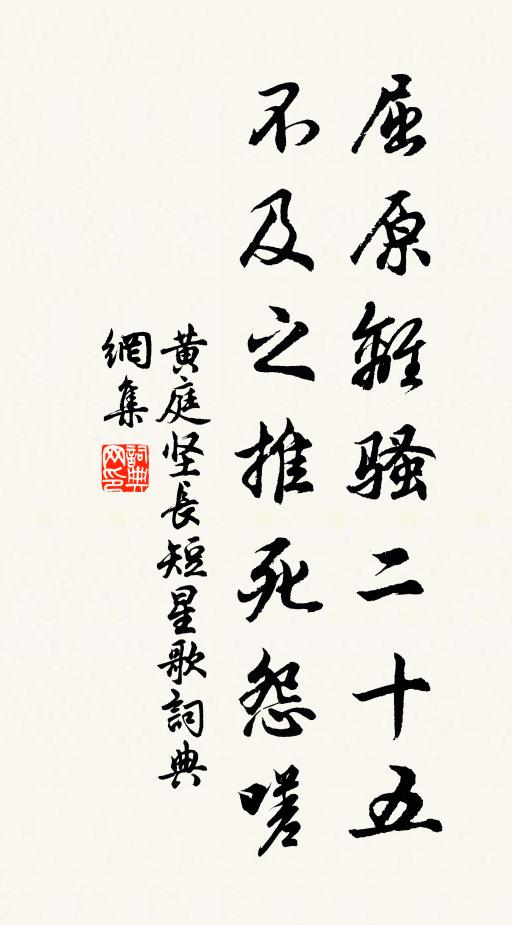 屈原離騷二十五
不及之推死怨嗟
黄庭坚長短星歌詞典
網集
詞典
网印